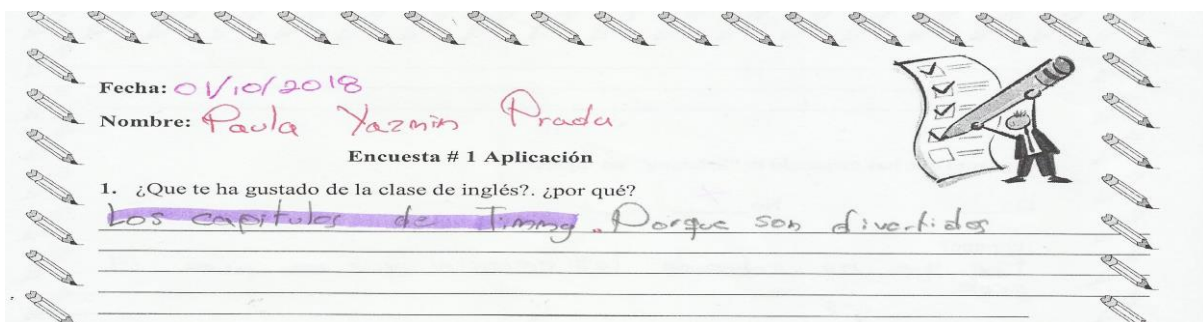 Fecha: 01/10/2018
Nombre: Paula Yazmin Prada
Encuesta # 1 Aplicación
1. ¿Que te ha gustado de la clase de inglés?. ¿por qué?
Los capitulos de Timmy. Porque son divertidos